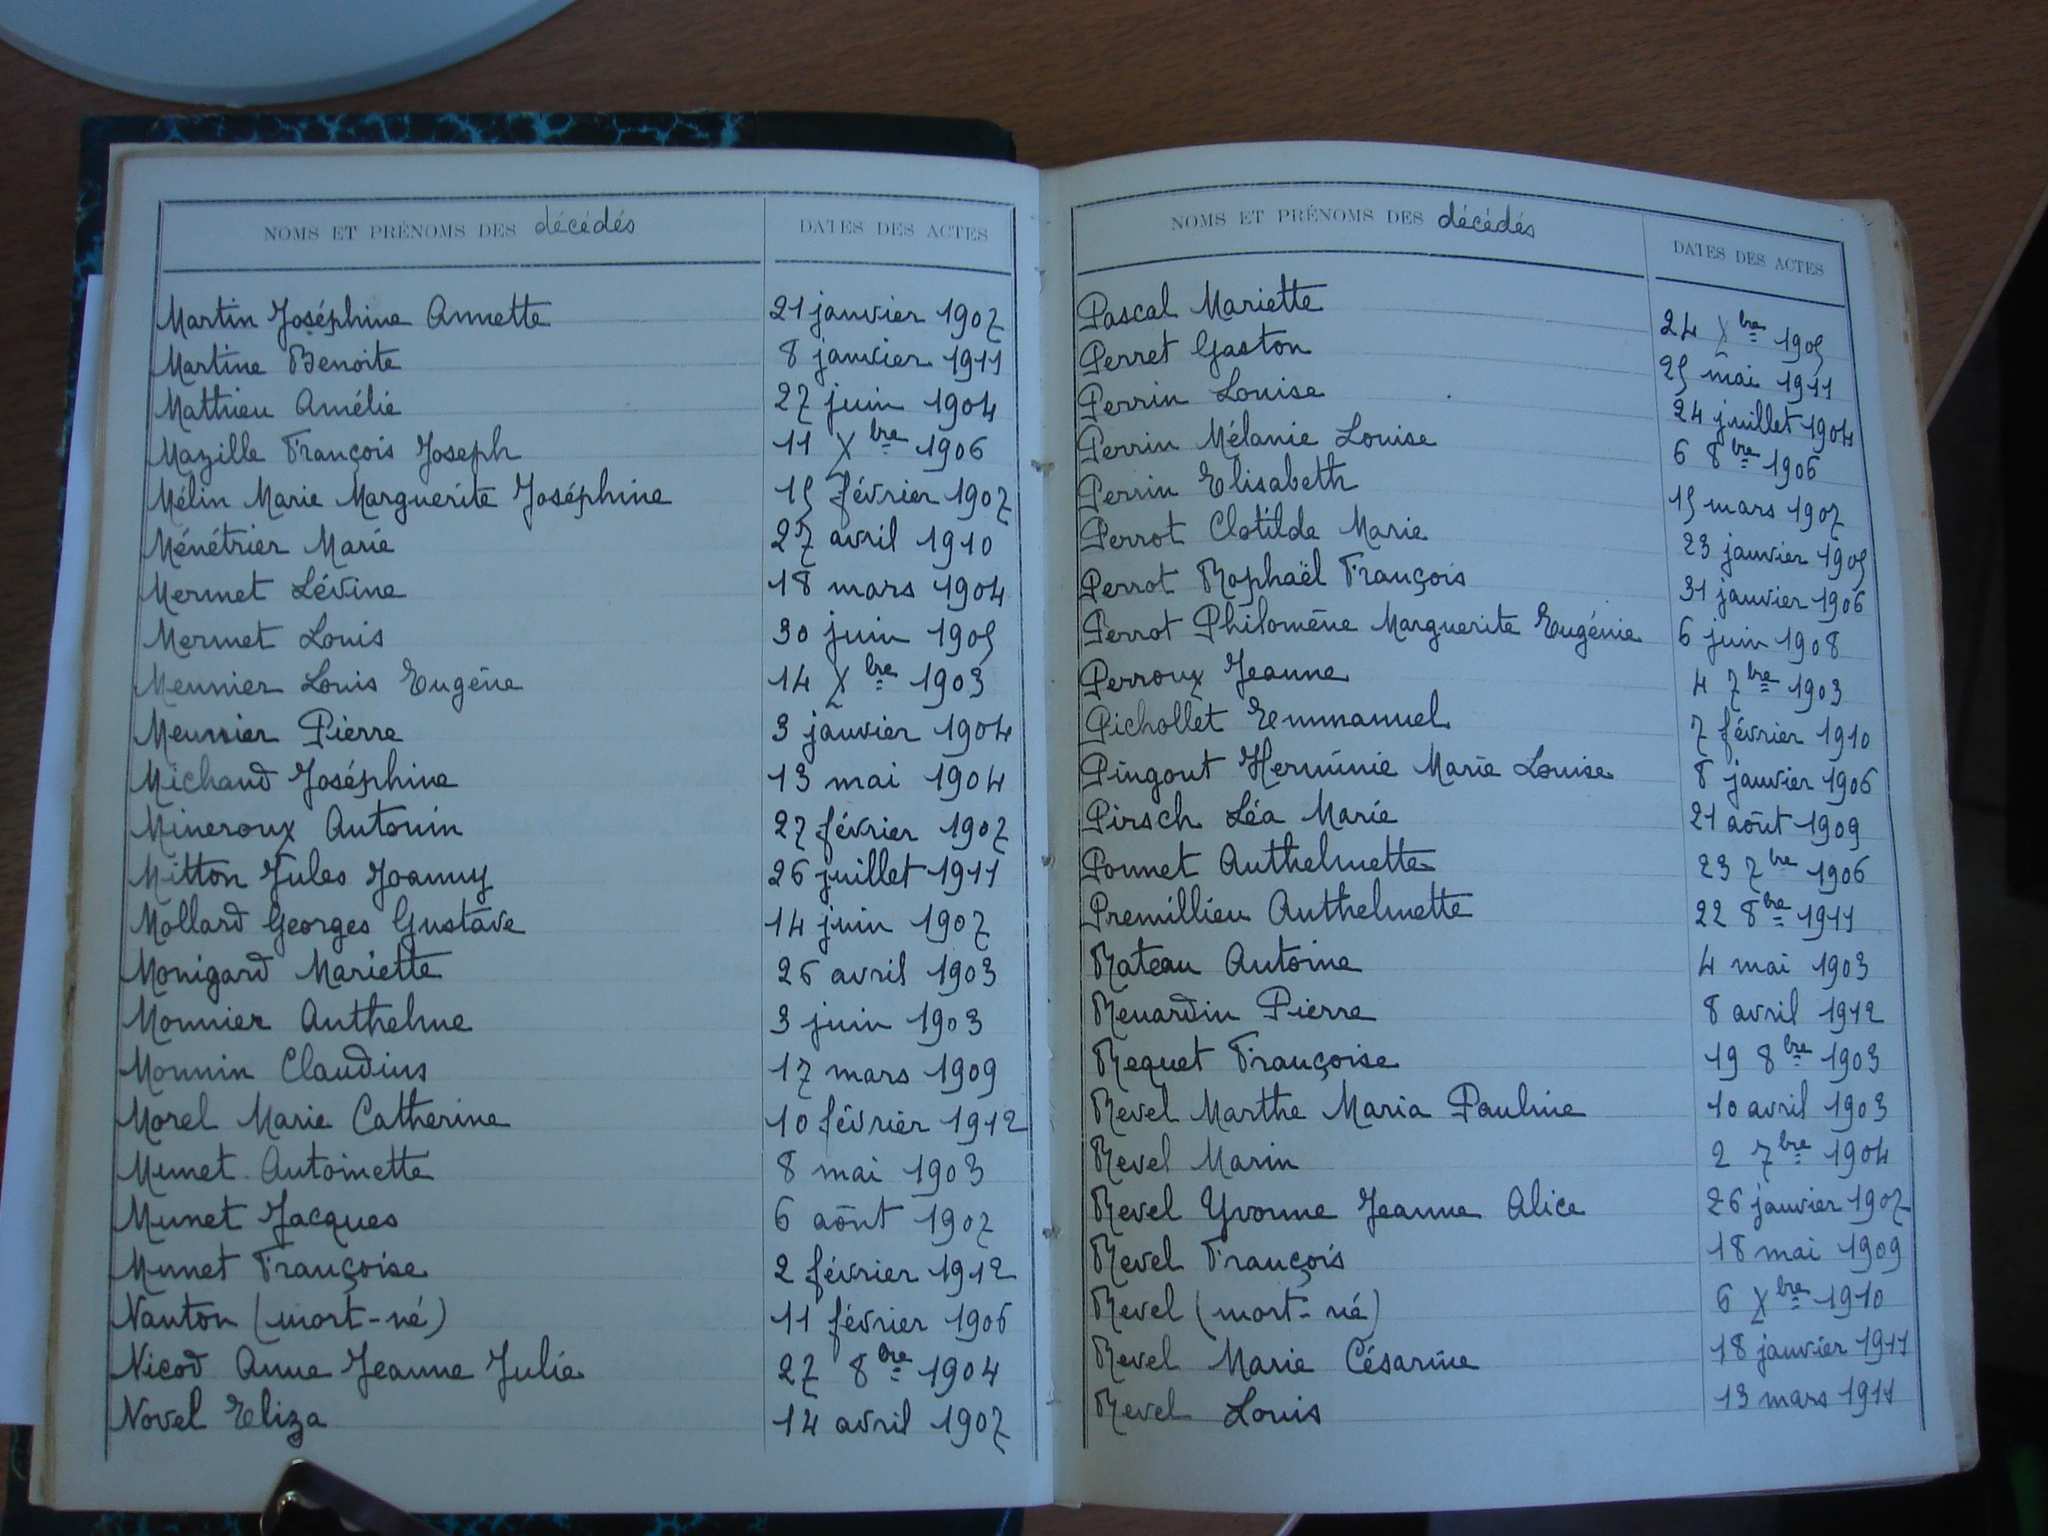 NOMS ET PRÉNOMS DES décédés DATES DES ACTES
Martin Joséphine Annette 21 janvier 1907
Martine Benoite 8 janvier 1911
Mathieu Amélie 27 juin 1904
Mazille François Joseph 11 Xbre 1906
Mélin Marie Marguerite Joséphine 15 février 1907
Ménétrier Marie 27 avril 1910
Mermet Lévine 18 mars 1904
Mermet Louis 30 juin 1905
Meunier Louis Eugène 14 Xbre 1903
Meunier Pierre 3 janvier 1904
Michaud Joséphine 13 mai 1904
Mineroux Antonin 27 février 1907
Mitton Jules Joanny 26 juillet 1911
Mollard Georges Gustave 14 juin 1907
Monigard Mariette 26 avril 1903
Monnier Anthelme 3 juin 1903
Monnin Claudius 17 mars 1909
Morel Marie Catherine 10 février 1912
Munet Antoinette 8 mai 1903
Munet Jacques 6 août 1907
Munet Françoise 2 février 1912
Nanton (mort-né) 11 février 1906
Nicod Anne Jeanne Julie 27 8bre 1904
Novel Eliza 14 avril 1907
NOMS ET PRÉNOMS DES décédés DATES DES ACTES
Pascal Mariette 24 Xbre 1905
Perret Gaston 25 mai 1911
Perrin Louise 24 juillet 1904
Perrin Mélanie Louise 6 8bre 1906
Perrin Elisabeth 15 mars 1907
Perrot Clotilde Marie 23 janvier 1905
Perrot Raphaël François 31 janvier 1906
Perrot Philomène Marguerite Eugénie 6 juin 1908
Perroux Jeanne 4 7bre 1903
Pichollet Emmanuel 7 février 1910
Pingout Herminie Marie Louise 8 janvier 1906
Pirsch Léa Marie 21 août 1909
Ponnet Anthelmette 23 7bre 1906
Premillieu Anthelmette 22 8bre 1911
Rateau Antoine 4 mai 1903
Renardin Pierre 8 avril 1912
Requet Françoise 19 8bre 1903
Revel Marthe Maria Pauline 10 avril 1903
Revel Marin 2 7bre 1904
Revel Yvonne Jeanne Alice 26 janvier 1907
Revel François 18 mai 1909
Revel (mort-né) 6 Xbre 1910
Revel Marie Césarine 18 janvier 1911
Revel Louis 13 mars 1911